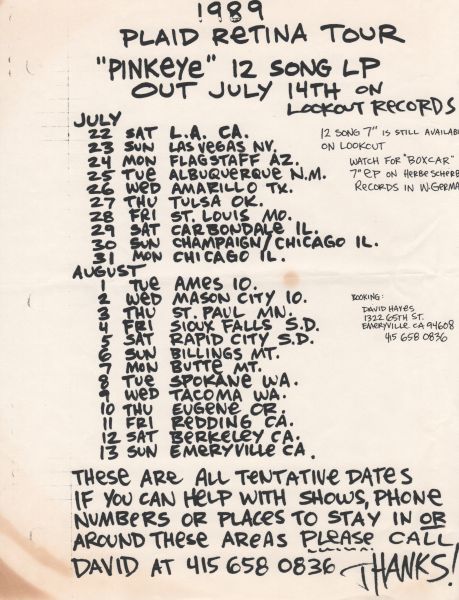 1989
PLAID RETINA TOUR
"PINKEYE" 12 SONG LP
OUT JULY 14TH ON
LOOKOUT RECORDS
JULY
22 SAT L.A. CA.
23 SUN LAS VEGAS NV.
24 MON FLAGSTAFF AZ.
25 TUE ALBUQUERQUE N.M.
26 WED AMARILLO TX.
27 THU TULSA OK.
28 FRI ST. LOUIS MO.
29 SAT CARBONDALE IL.
30 SUN CHAMPAIGN/CHICAGO IL.
31 MON CHICAGO IL.
12 SONG 7" IS STILL AVAILAB
ON LOOKOUT
WATCH FOR "BOXCAR"
7" EP ON HERBE SCHERB
RECORDS IN W. GERMA
AUGUST
1 TUE AMES IO.
2 WED MASON CITY IO.
3 THU ST. PAUL MN.
4 FRI SIOUX FALLS S.D.
5 SAT RAPID CITY S.D.
6 SUN BILLINGS MT.
7 MON BUTTE MT.
8 TUE SPOKANE WA.
9 WED TACOMA WA.
10 THU EUGENE OR.
11 FRI REDDING CA.
12 SAT BERKELEY CA.
13 SUN EMERYVILLE CA.
BOOKING:
DAVID HAYES
1322 65TH ST.
EMERYVILLE CA 94608
415 658 0836
THESE ARE ALL TENTATIVE DATES
IF YOU CAN HELP WITH SHOWS, PHONE
NUMBERS OR PLACES TO STAY IN OR
AROUND THESE AREAS PLEASE CALL
DAVID AT 415 658 0836 THANKS!